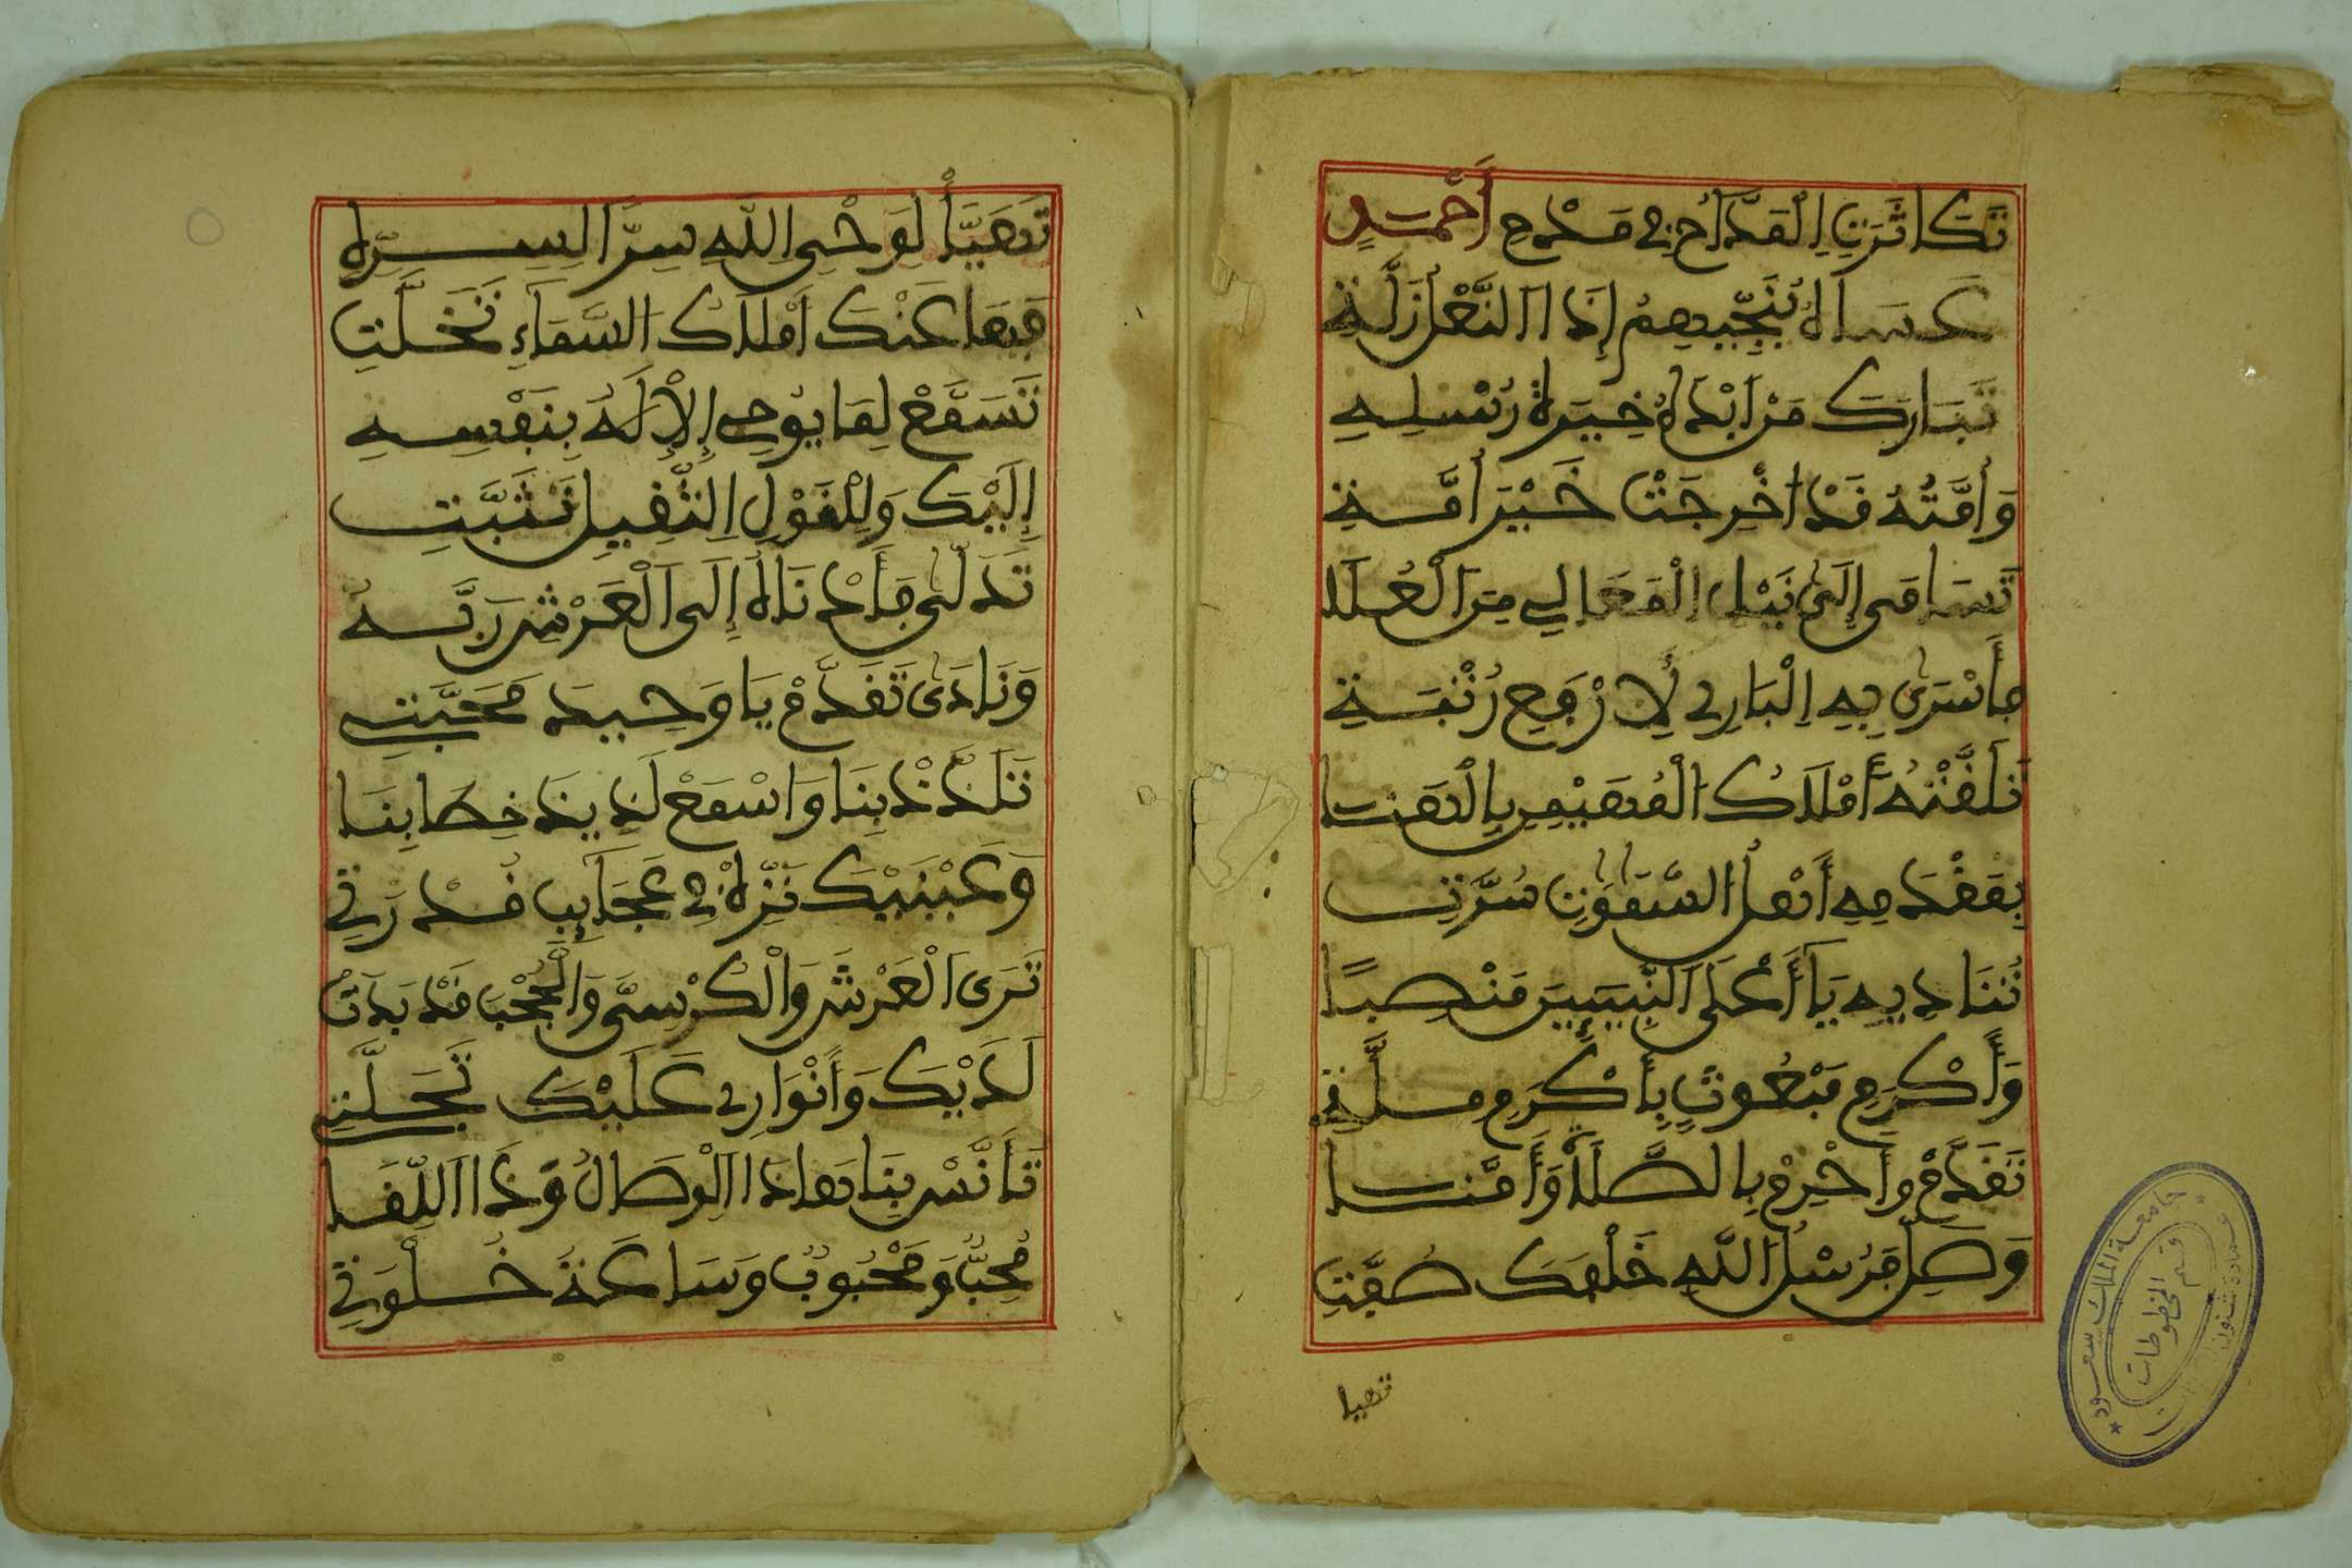 تَكَاثَرَتِ اِلْمَدَّاحُ فِي مَدْحِ أَحْمَدٍ
عَسَاهُ يُنَجِّيهِمْ إِذَا النَّعْلُ زَلَّتِ
تَبَارَكَ مَنْ أَبْدَاهُ خِيرَةَ رُسْلِهِ
وَأُمَّتُهُ قَدْ أُخْرِجَتْ خَيْرَ أُمَّةِ
تَسَامَى إِلَى نَيْلِ اِلْمَعَالِي مِنَ الْعُلَا
فَأَسْرَى بِهِ اِلْبَارِي لِأَرْفَعِ رُتْبَةِ
تَلَقَّتْهُ أَمْلَاكُ الْمُهَيْمِنِ بِالْهَنَا
بِمَقْدَمِهِ أَهْلُ السَّمَوٰتِ سُرَّتِ
تُنَادِيهِ يَا أَعْلَى النَّبِيِّينَ مَنْصِبًا
وَأَكْرَمَ مَبْعُوثٍ بِأَكْرَمِ مِلَّةِ
تَقَدَّمْ وَأَحْرِمْ بِالصَّلَاةِ وَأُمَّنَا
وَصَلِّ فَرُسْلُ اللَّهِ خَلْفَكَ صُفَّتِ
تهيا
جامعة الملك سعود
قسم المخطوطات
تَهَيَّأْ لِوَحْيِ اِللَّهِ سِرًّا لِسِرِّهِ
فَهَا عَنْكَ أَمْلَاكُ السَّمَاءِ تَخَلَّتِ
تَسَمَّعْ لِمَا يُوحِي اِلْإِلَهُ بِنَفْسِهِ
إِلَيْكَ وَلِلْقَوْلِ اِلثَّقِيلِ تَثَبَّتِ
تَدَلَّى فَأَدْنَاهُ إِلَى الْعَرْشِ رَبُّهُ
وَنَادَى تَقَدَّمْ يَا وَحِيدَ مَحَبَّتِي
تَلَذَّذْ بِنَا وَاسْمَعْ لَذِيذَ خِطَابِنَا
وَعَيْنَيْكَ نَزِّهْ فِي عَجَائِبِ قُدْرَتِي
تَرَى الْعَرْشَ وَالْكُرْسِيَّ وَالْحُجْبَ قَدْ بَدَتْ
لَدَيْكَ وَأَنْوَارِي عَلَيْكَ تَجَلَّتِ
تَأَنَّسْ بِنَا هَاذَا اِلْوِصَالُ وَذَا اَللِّقَا
مُحِبٌّ وَمَحْبُوبٌ وَسَاعَةُ خُلْوَتِي